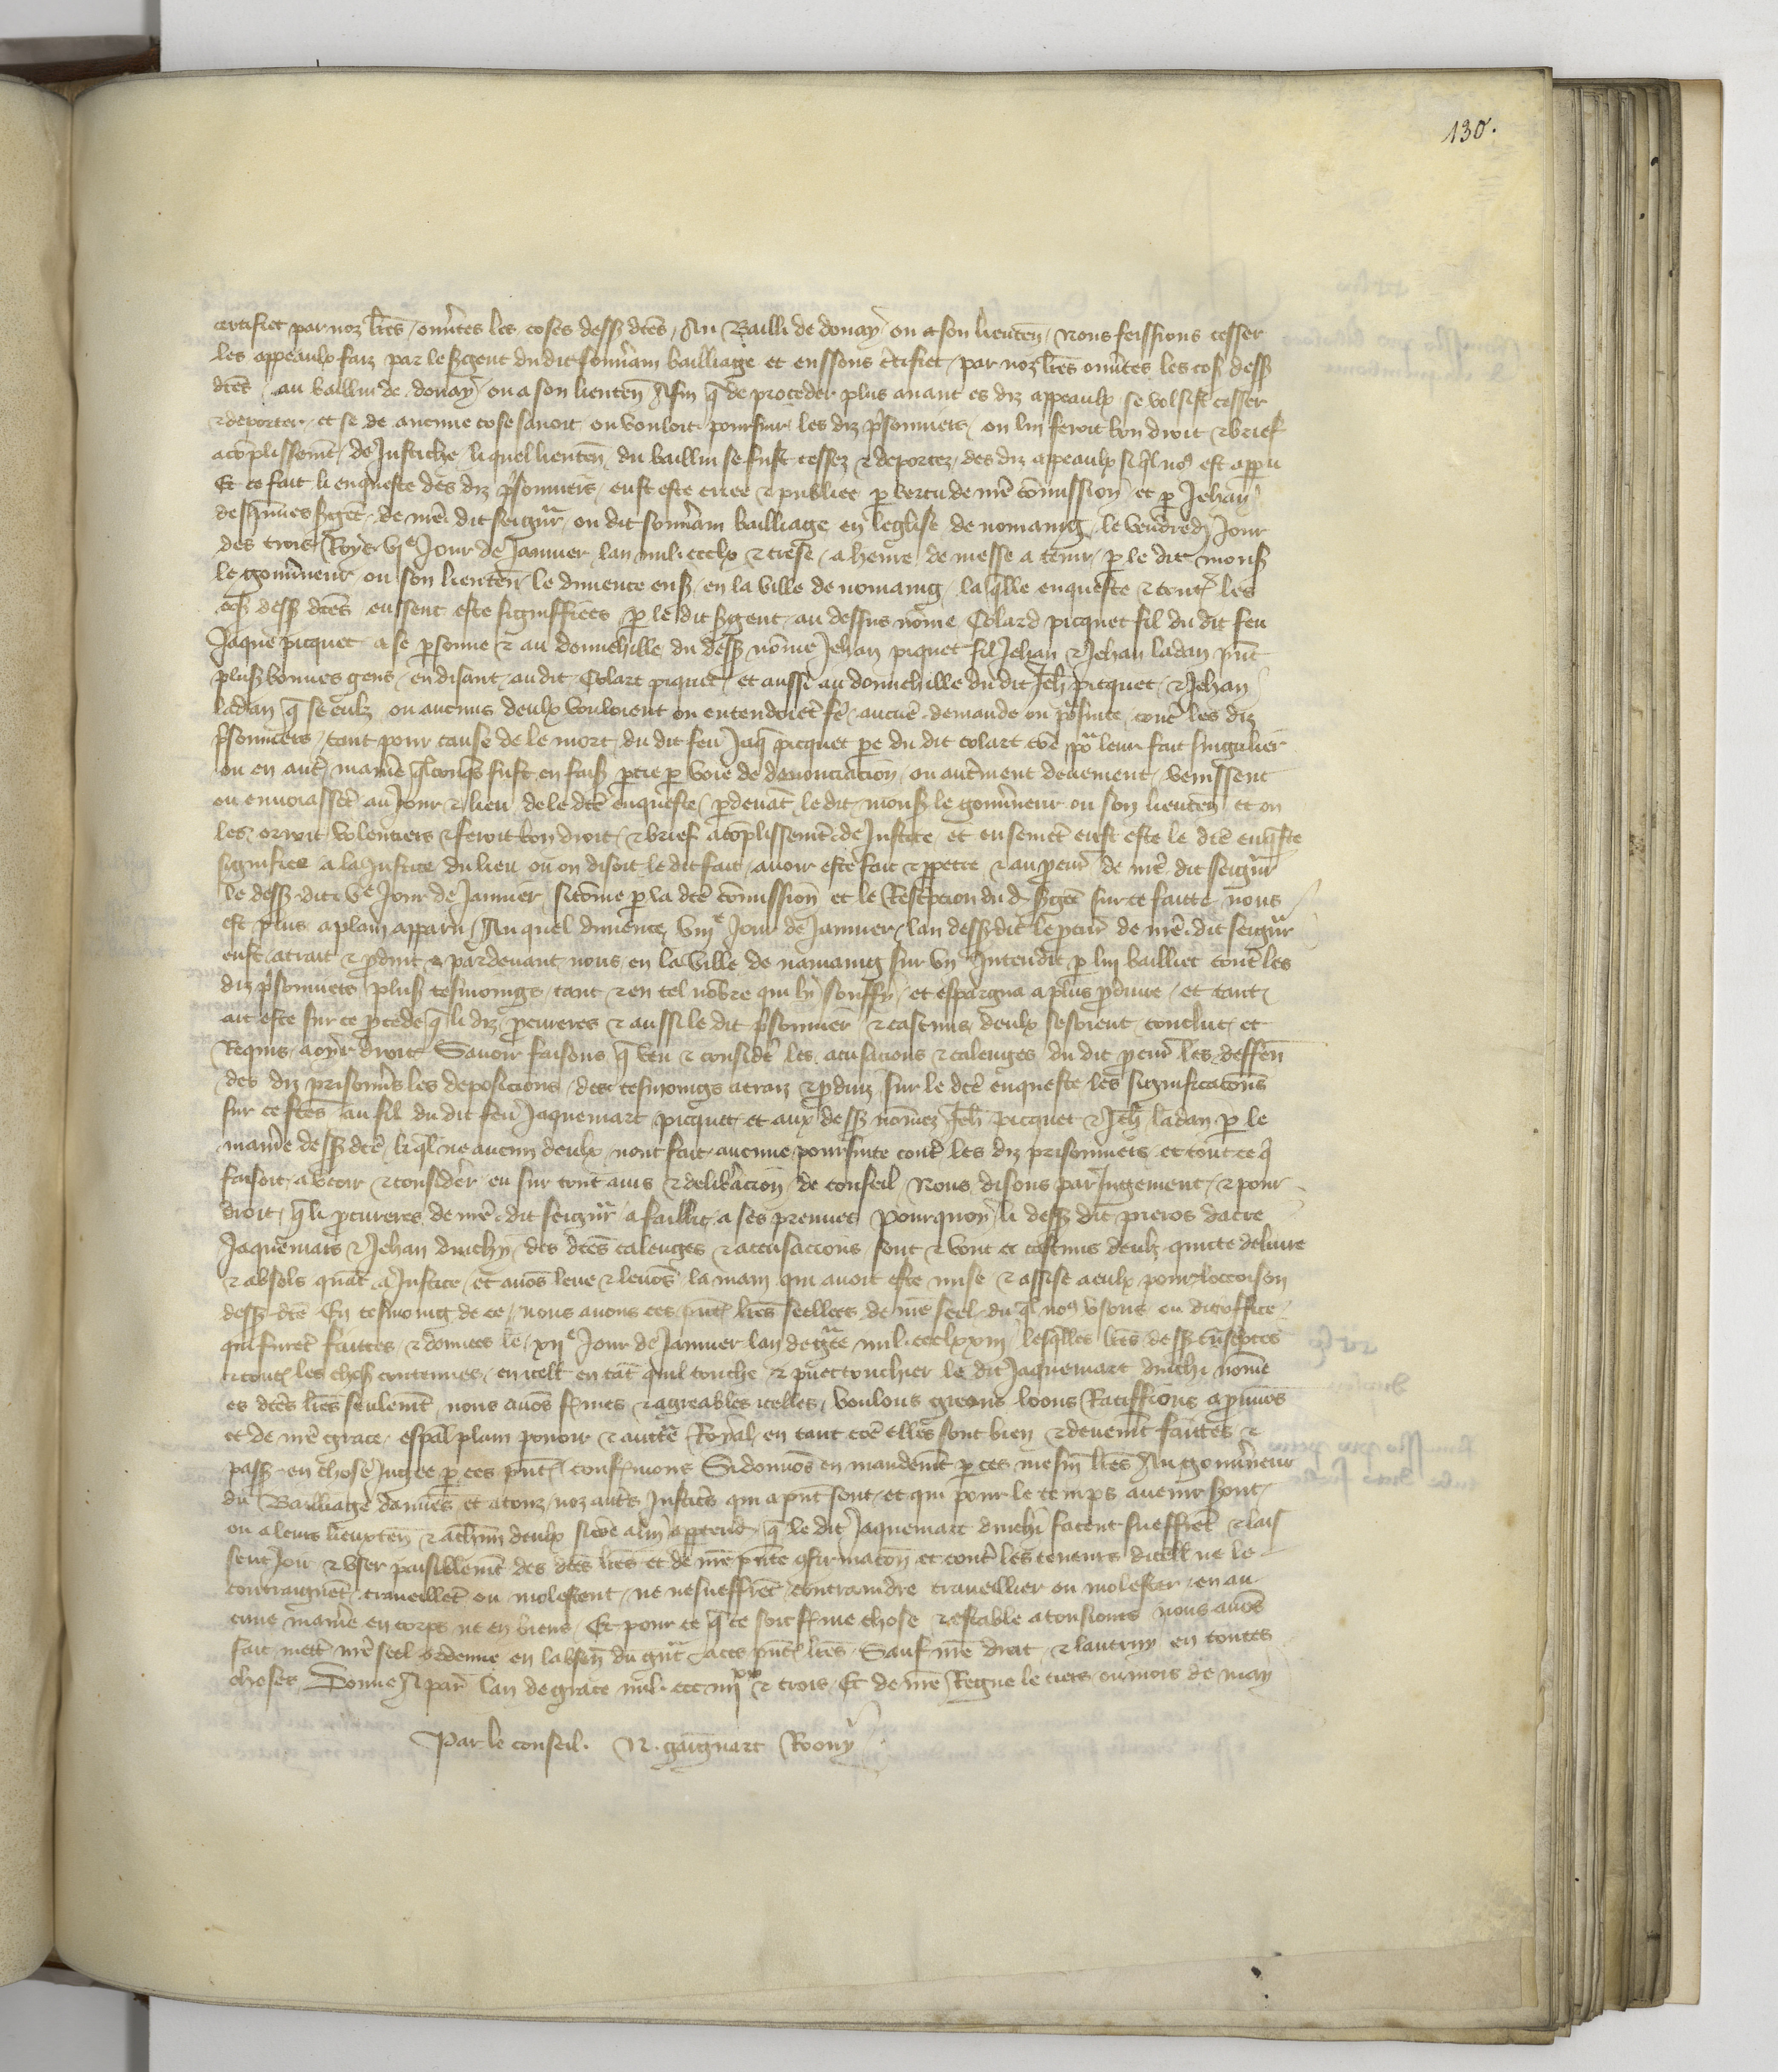 130.
certifiet par noz lres ouvtes les coses dess dtes Au Bailli de douay ou a son lieuten Nous feissions cesser
les appeaulx faiz par le sgent du dit souvrain bailliage et eussons certifiet par noz lres ouvtes les cos dess
dtes au bailliu de douay ou a son lieuten Afin q de proceder plus avant es diz appeaulx se volsist cesser
& deporter et se de aucune cose savoit ou vouloit poursuir les diz prisonniers on lui feroit bon droit & brief
acoplissemt de Justiche liquel lieuten du bailliu se fust cessez & deportez des diz appeaulx si ql nos est apparu
Et ce fait li enqueste des diz prisonniers eust este criee & publiee p vertu de nre comission et p Jehan
de sgent de nre dit seigneur ou dit souvrain bailliage en leglise de nomaing le venderedi Jour
des trois Roys vje Jour de Jenvier lan mil ccclx & trese a heure de messe a tenir p le dit mons
le gouvneur ou son lieuten le diuence ens en la ville de nomaing la qlle enqueste & tout les
cos dess dtes eussent este signiffiees p le dit sgent au dessus nome Colard picquet fil du dit feu
Jaque picquet a se psonne & au domichille du dess nome Jehan piquet fil Jehan & Jehan ladan pnt
plus bonnes gens en disant au dit Colart piquet et aussi au domichille du dit Jeh picquet & Jehan
ladan q se eulz ou aucuns deulx vouloient ou entendoiet fe aucue demande ou psuite cont les diz
prisonniers tant pour cause de le mort du dit feu Jaq picquet pe du dit colart coe po leur fait singulier
ou en aut maniere qlconqs fust en fais ptie p voie de denonciacion ou autrement deuement venissent
ou envoiasset au Jour & lieu de le dte enqueste pdevat le dit mons le gouvneur ou son lieuten et on
les orroit volentiers & feroit bon droit & brief acoplissemt de Justice et ensemet eust este le dte enqste
signifiee a la Justice du lieu ou on disoit le dit fait avoir este fait & ppetre & au pcur de nre dit seigneur
le dess dit ve Jour de Jenvier sicome p la dte comission et le Rescpcion du d sgent sur ce faitte nous
est plus a plain apparu Au quel diuence viije Jour de Jenvier lan dess dit le pcur de nre dit seigneur
eust atrait & pduit pardevant nous en la ville de namaing sur un Intendit p lui bailliet cont les
diz prisonniers plus tesmoings tant & en tel nobre qui ly souffy et espargna a plus pduire et tant
ait este sur ce pcede q li diz pcureres & aussi le dit prisonnier & cascuns deulx sesoient conclut et
Requis a oyr droit Savoir faisons q veu & consider les acusacions & calenges du dit pcur les deffen
des diz prisonnrs les deposicions des tesmoings atraiz & pduiz sur le dte enqueste les significacons
sur ce ftes au fil du dit feu Jaquemart picquet et aux dess nomez Jeh picquet & Jeh ladan p le
maniere dess dte li ql ne aucun deulx nont fait aucune poursuite cont les diz prisonniers et tout ce q
faisoit a veoir & considerer eu sur tout avis & deliberacion de conseil Nous disons par Jugement & pour
droit q li pcureres de nre dit seigneur a failli a ses preuves Pourquoy li dess dit pieros dacre
Jaquemars & Jehan duichy des dtes calenges & accusacions sont & vont et cascuns deulz quicte delivre
& absols quat a Justice et avos leve & levos la main qui avoit este mise & assise a eulx pour locoison
dess dte En tesmoing de ce nous avons ces pnt lres seellees de nre seel du ql nos usons ou dit office
qui furet faittes & donnees le xije Jour de Jenvier lan de gre mil ccclxxiij lesqlles lres dess tnscptes
& tout les choss contenues en icell en tat quil touche & puet touchier le dit Jaquemart duichi nome
es dtes lres seulemt nous avos fmes & agreables icelles voulons greons loons Ratiffions apruvos
et de nre grace espal plain povoir & auctre Royal en tant coe elles sont bien & deuemt faites &
pass en chose Jugee p ces pnt confmons Si donnos en mandemt p ces mesm lres Au gouvneur
du Bailliage damies et a touz noz autrs Justicrs qui a pnt sont et qui pour le temps avenir sont
ou a leurs lieuxten & a chun deulx sicoe a lui apptend q le dit Jaquemart duichi facent sueffret & lais
sent Joir & user paisiblemt des dtes lres et de nre pnte confirmacon et contr les teneurs dicell ne le
contraignet traveillet ou molestent ne ne sueffret contraindre traveillier ou molester en au
cune maniere en corps ne en biens Et pour ce q ce soit fme chose & estable a tousiours nous avos
fait mett nre seel ordenne en labsen du gnt a ces pnt lres Sauf nre droit & lautruy en toutes
choses Donne A par lan de grace mil ccc iiijxx & trois Et de nre Regne le tiers ou mois de may
Par le conseil. N. gaignart Roouy